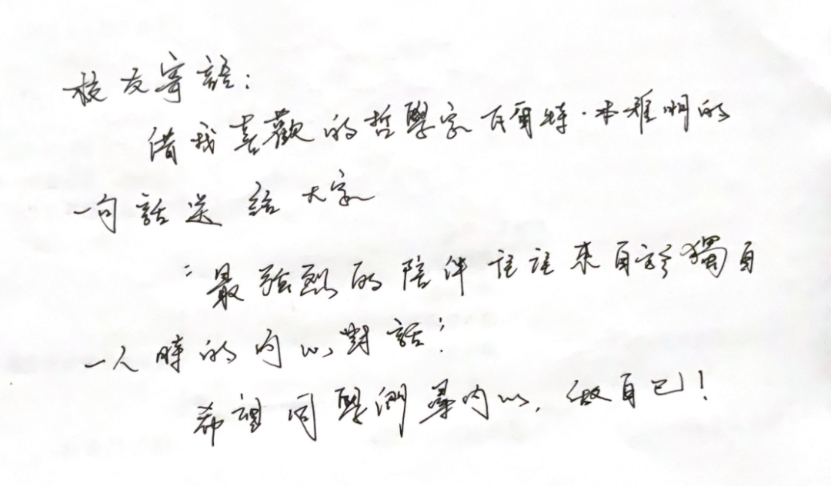 校友寄語：
借我喜歡的哲學家瓦爾特·本雅明的
一句話送給大家
“最强烈的陪伴往往來自於獨自
一人時的內心對話！
希望同學們尋內心，做自己！